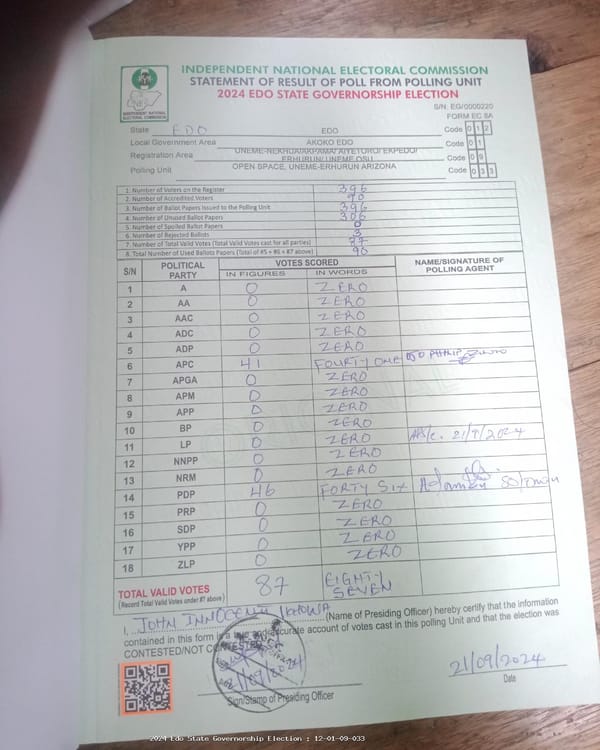 INDEPENDENT NATIONAL ELECTORAL COMMISSION
STATEMENT OF RESULT OF POLL FROM POLLING UNIT
2024 EDO STATE GOVERNORSHIP ELECTION
INDEPENDENT NATIONAL ELECTORAL COMMISSION
S/N: EG/0000220
FORM EC 8A
State EDO EDO Code 0 1 2
Local Government Area AKOKO EDO Code 0 1
Registration Area UNEME-NEKHUA/AKPAMA/ AIYETORO/ EKPEDO/ ERHURUN/ UNEME OSU Code 0 9
Polling Unit OPEN SPACE, UNEME-ERHURUN ARIZONA Code 0 3 3
1. Number of Voters on the Register 396
2. Number of Accredited Voters 90
3. Number of Ballot Papers Issued to the Polling Unit 396
4. Number of Unused Ballot Papers 306
5. Number of Spoiled Ballot Papers 0
6. Number of Rejected Ballots 3
7. Number of Total Valid Votes (Total Valid Votes cast for all parties) 87
8. Total Number of Used Ballots Papers (Total of #5 + #6 + #7 above) 90
S/N POLITICAL PARTY VOTES SCORED NAME/SIGNATURE OF POLLING AGENT
IN FIGURES IN WORDS
1 A 0 ZERO
2 AA 0 ZERO
3 AAC 0 ZERO
4 ADC 0 ZERO
5 ADP 0 ZERO
6 APC 41 FOURTY ONE PHILIP
7 APGA 0 ZERO
8 APM 0 ZERO
9 APP 0 ZERO
10 BP 0 ZERO
11 LP 0 ZERO 21/9/2024
12 NNPP 0 ZERO
13 NRM 0 ZERO
14 PDP 46 FORTY SIX
15 PRP 0 ZERO
16 SDP 0 ZERO
17 YPP 0 ZERO
18 ZLP 0 ZERO
TOTAL VALID VOTES 87 EIGHTY SEVEN
(Record Total Valid Votes under #7 above)
I, JOHN INNOCENT (Name of Presiding Officer) hereby certify that the information
contained in this form is a true and accurate account of votes cast in this polling Unit and that the election was
CONTESTED/NOT CONTESTED
21/09/2024
21/09/2024
Sign/Stamp of Presiding Officer
Date
2024 Edo State Governorship Election : 12-01-09-033